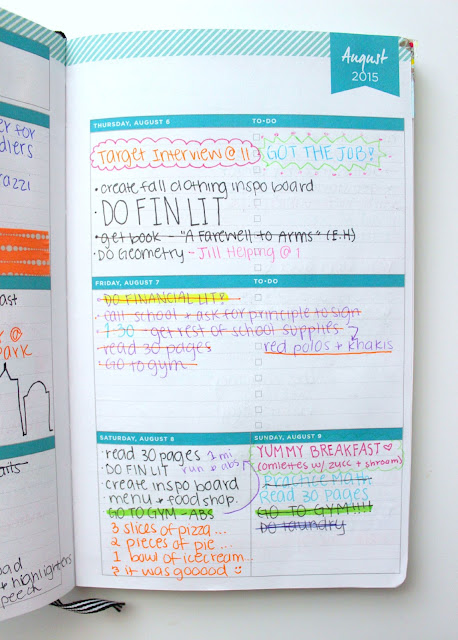 er for
diers
razzi
ast
@
ark
aits
oad
+ highlighters
speech
August
2015
THURSDAY, AUGUST 6
TO-DO
Target Interview @ 11
GOT THE JOB!
• create fall clothing inspo board
• DO FIN LIT
• get book - "A Farewell to Arms" (E.H)
• DO Geometry - Jill Helping @ 1
FRIDAY, AUGUST 7
TO-DO
• DO FINANCIAL LIT!
• call school + ask for principle to sign
• 1:30 - get rest of school supplies
• read 30 pages
red polos + khakis
• Go to gym
SATURDAY, AUGUST 8
• read 30 pages
• DO FIN LIT
run + abs
• create inspo board
• menu + food shop.
• GO TO GYM - ABS
3 slices of pizza...
2 pieces of pie...
1 bowl of icecream...
? it was gooood :)
SUNDAY, AUGUST 9
YUMMY BREAKFAST ♡
(omlettes w/ zucc + shroom)
Practice Math
Read 30 pages
GO TO GYM!!!!
Do laundry